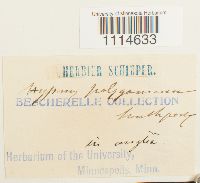 University of Minnesota Herbarium
1114633
HERBIER SCHIMPER.
Hypnum polygamum
BESCHERELLE COLLECTION
Southport
in anglia
Herbarium of the University,
Minneapolis, Minn.